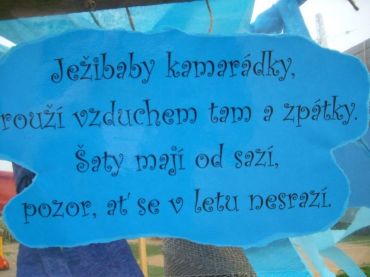 Ježibaby kamarádky,
rouží vzduchem tam a zpátky.
Šaty mají od sazí,
pozor, ať se v letu nesrazí.